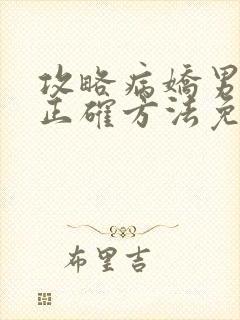 攻略病嬌男
正確方法免
布里吉